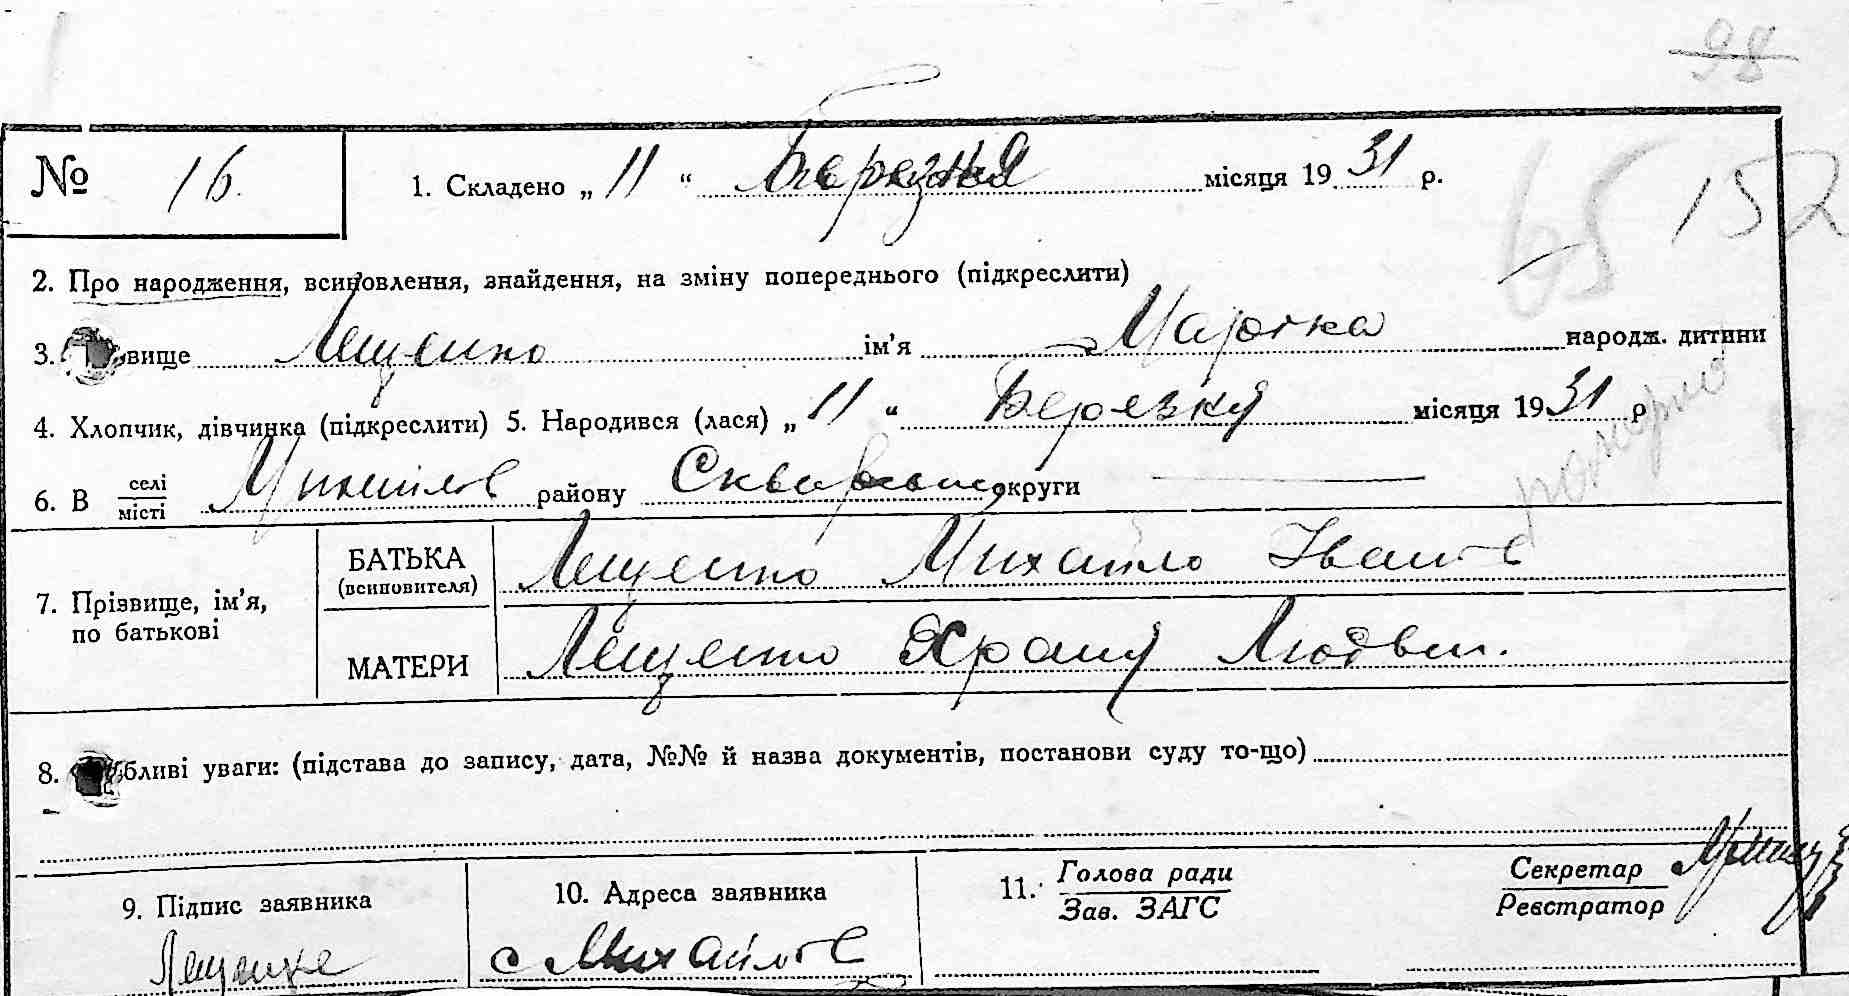 98
№ 16. 1. Складено „ 11 “ Березня місяця 1931 р.
65 152
2. Про народження, всиновлення, знайдення, на зміну попереднього (підкреслити)
3. вище Лещенко ім’я народж. дитини
4. Хлопчик, дівчинка (підкреслити) 5. Народився (лася) „ 11 “ Березня місяця 1931 р
6. В селі місті району Сквирського округи
7. Прізвище, ім’я, по батькові
БАТЬКА (всиновителя) Лещенко Михайло Іванов
МАТЕРИ Лещенко
8. бливі уваги: (підстава до запису, дата, №№ й назва документів, постанови суду то-що)
9. Підпис заявника 10. Адреса заявника 11. Голова ради Зав. ЗАГС Секретар Реєстратор
Лещенко с Михайлів